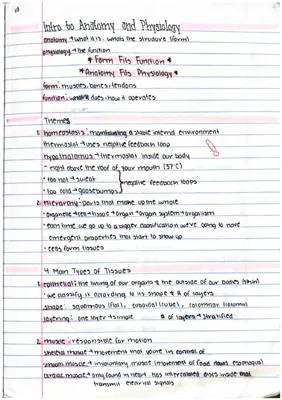 Intro to Anatomy and Physiology
anatomy → what it is, whats the structure (form)
physiology → the function
* Form Fits Function *
* Anatomy Fits Physiology *
form: muscles, bones, tendons
function: what it does, how it operates
Themes
1. homeostasis: maintaining a stable internal environment
thermostat → uses negative feedback loop
hypothalamus → thermostat inside our body
right above the roof of your mouth (37°C)
too hot → sweat
too cold → goosebumps
negative feedback loops
2. Hierarchy: parts that make up the whole
organelle → cell → tissue → organ → organ system → organism
each time we go up to a bigger classification we're going to have
emergent properties that start to show up
cells form tissues
4 Main Types of Tissues
1. epithelial: the lining of our organs & the outside of our bodies (skin)
we classify it according to its shape & # of layers
shape: squamous (flat), cuboidal (cube), columnar (column)
layering: one layer → simple # of layers → stratified
2. muscle: responsible for motion
skeletal muscle → movement that you're in control of
smooth muscle → involuntary muscle (movement of food down esophagus)
cardiac muscle → only found in heart, has intercalated discs inside that
transmit electrical signals